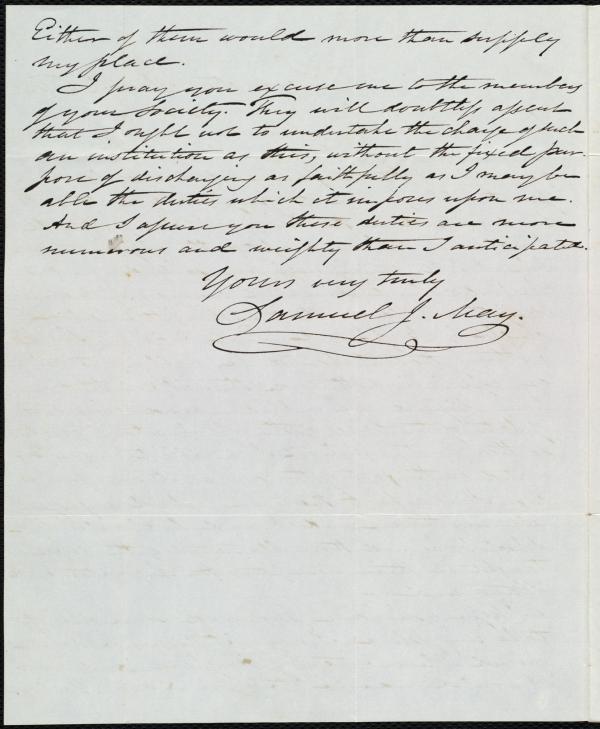 Either of them would more than supply
my place.
I pray you excuse me to the members
of your Society. They will doubtless assent
that I ought not to undertake the charge of such
an institution as this, without the fixed pur-
pose of discharging as faithfully as I may be
able the duties which it imposes upon me.
And I assure you these duties are more
numerous and weighty than I anticipated.
Yours very truly
Samuel J. May.